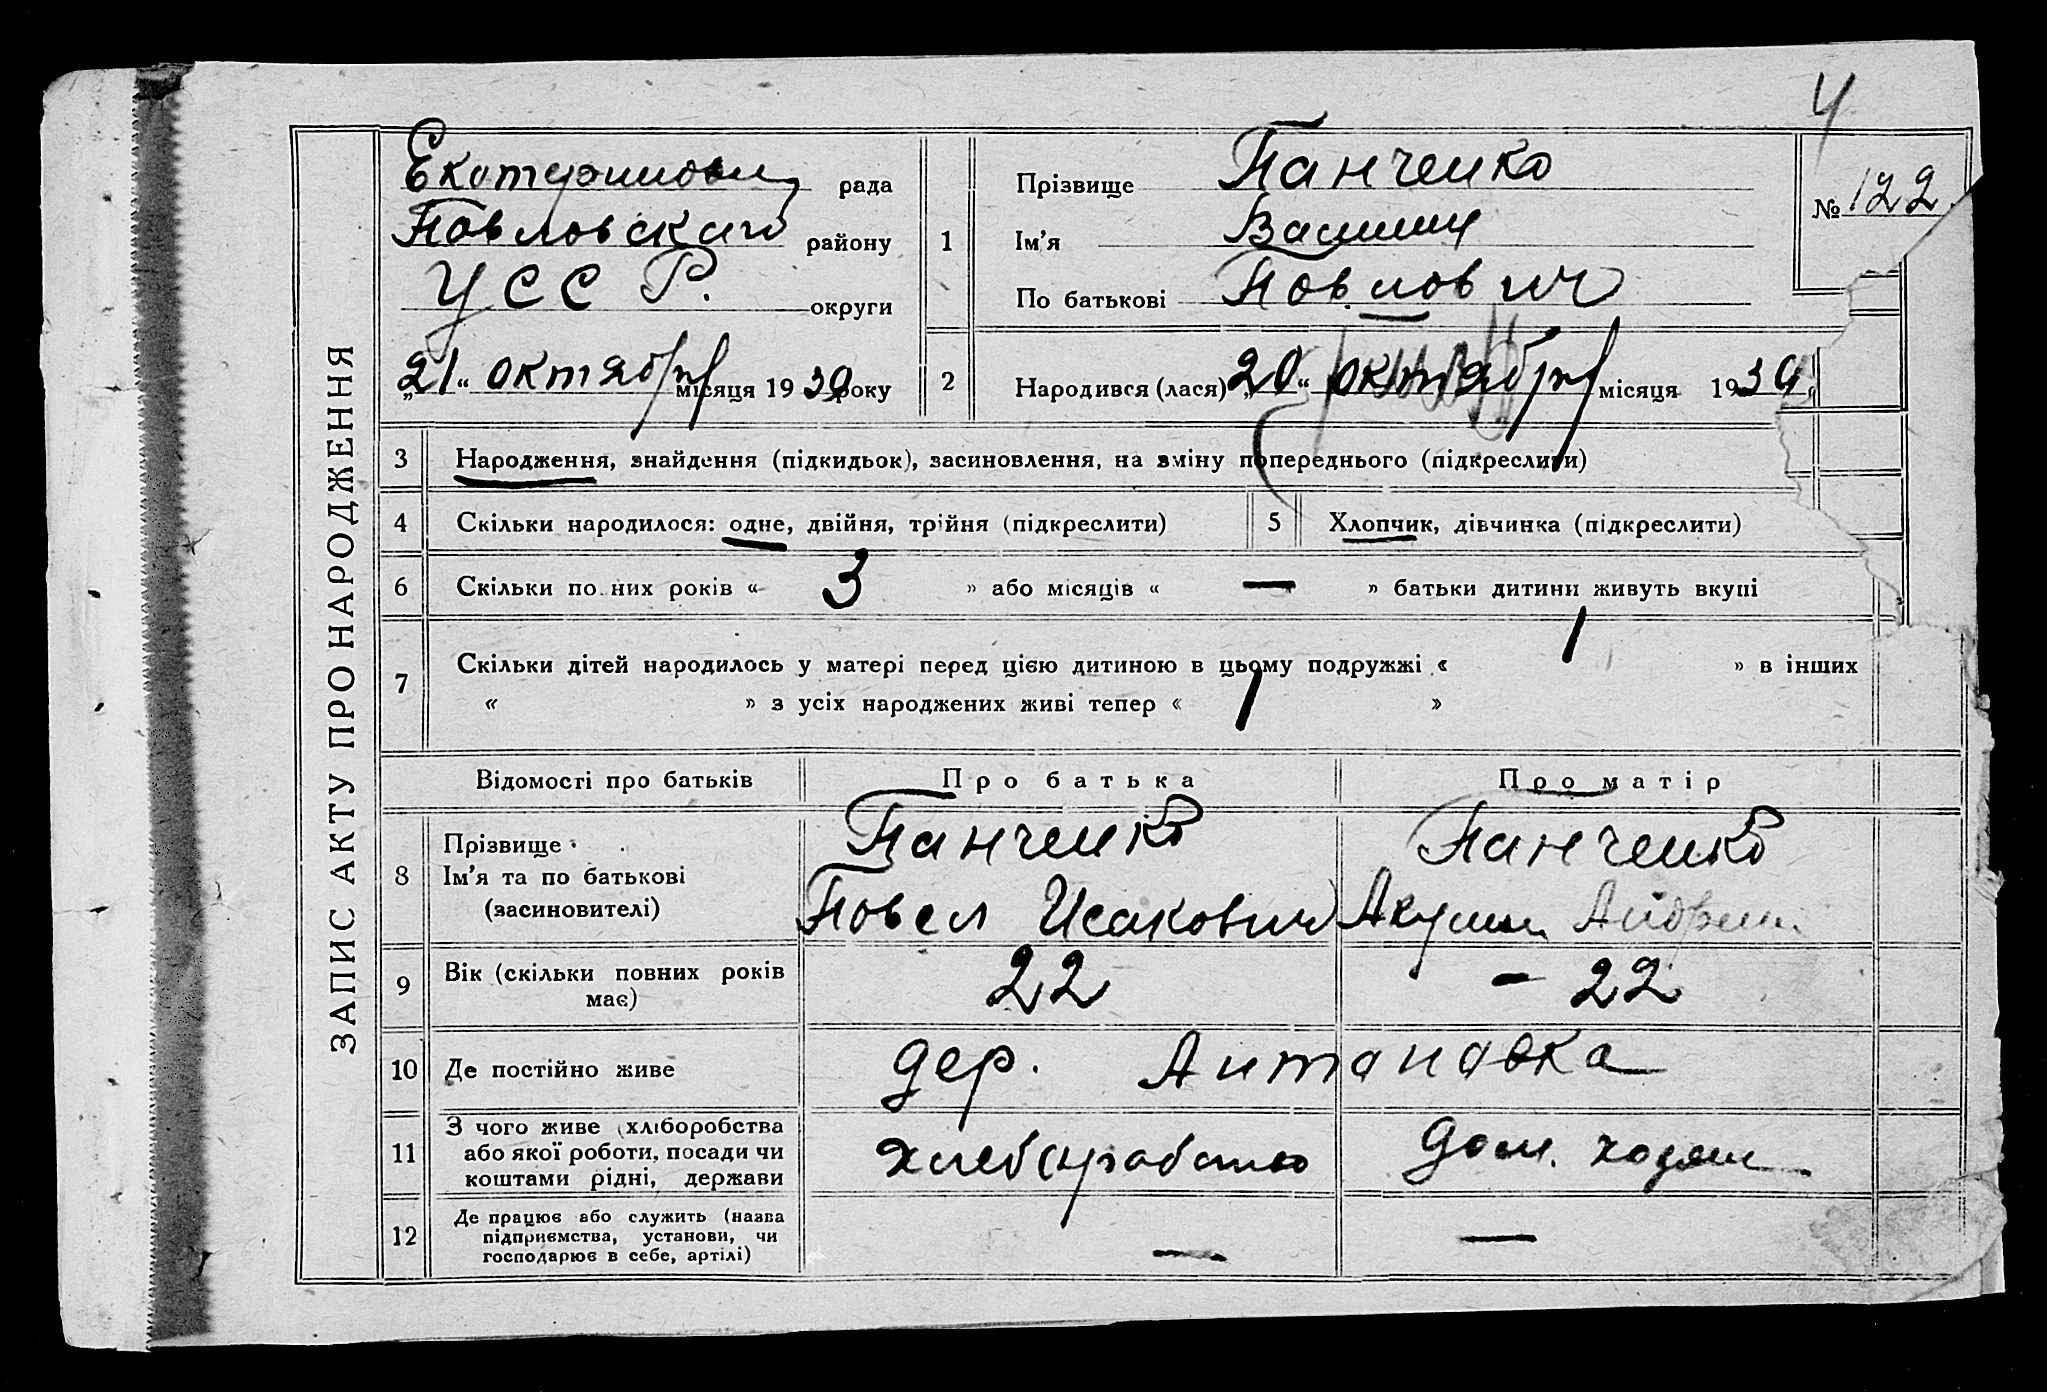 4
ЗАПИС АКТУ ПРО НАРОДЖЕННЯ
рада
Повловского району
УССР. округи
„21“ октября місяця 1930 року
1
Прізвище Панченко
Ім'я
По батькові Повлович
№ 122
2
Народився (лася) „20“ октября місяця 1930
3 Народження, знайдення (підкидьок), засиновлення, на зміну попереднього (підкреслити)
4 Скільки народилося: одне, двійня, трійня (підкреслити)
5 Хлопчик, дівчинка (підкреслити)
6 Скільки повних років « 3 » або місяців « — » батьки дитини живуть вкупі
7 Скільки дітей народилось у матері перед цією дитиною в цьому подружжі « 1 » в інших
« » з усіх народжених живі тепер « 1 »
Відомості про батьків
Про батька
Про матір
8
Прізвище
Ім'я та по батькові
(засиновителі)
Панченко
Повел Исакович
Панченко
9
Вік (скільки повних років
має)
22
– 22
10 Де постійно живе
дер. Антановка
11
З чого живе (хліборобства
або якої роботи, посади чи
коштами рідні, держави
Дом.
12
Де працює або служить (назва
підприємства, установи, чи
господарює в себе, артілі)
—
—